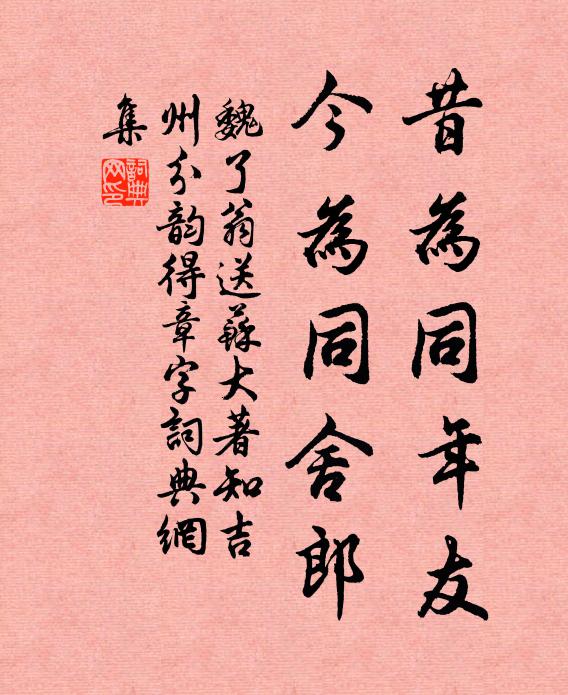 昔為同年友
今為同舍郎
魏了翁送蘇大著知吉
州分韵得章字詞典網
集
詞典
网印